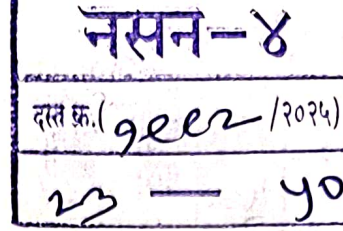 नसन-४
दस्त क्र.(१९९२/२०२५)
२३ — ५०